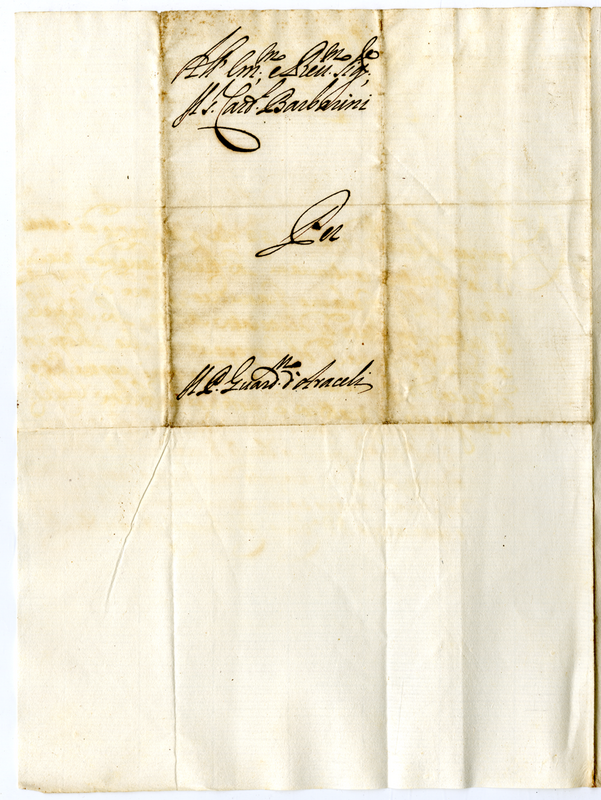 All' Em.mo e Reu.mo Sig.re
Il S. Card. Barbarini
Per
Il P. Guard.no d'Araceli